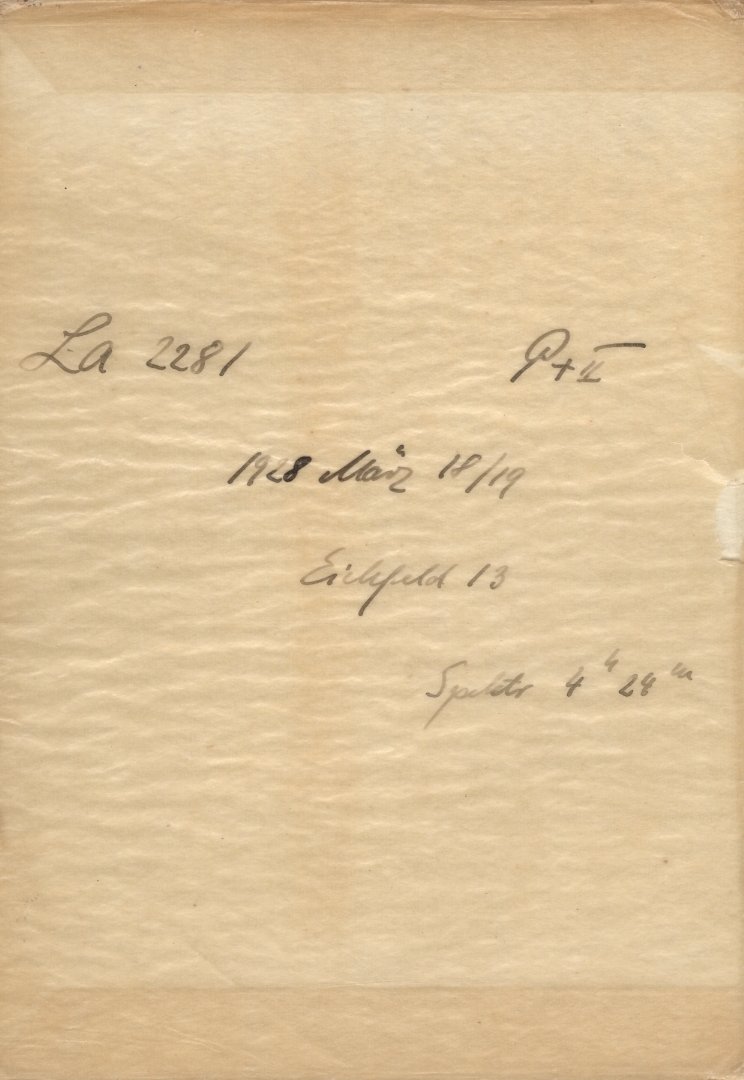 La 2281 P+II
1928 März 18/19
Eichfeld 13
Spektr 4h 24m